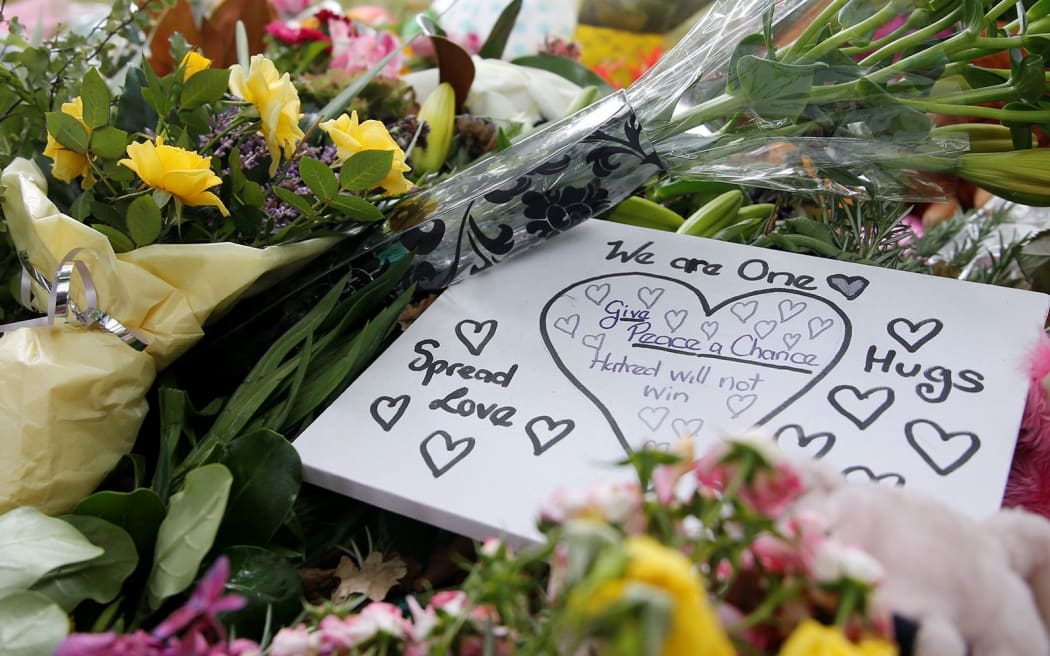 We are One
Give
Peace a Chance
Hatred will not
win
Spread
Love
Hugs